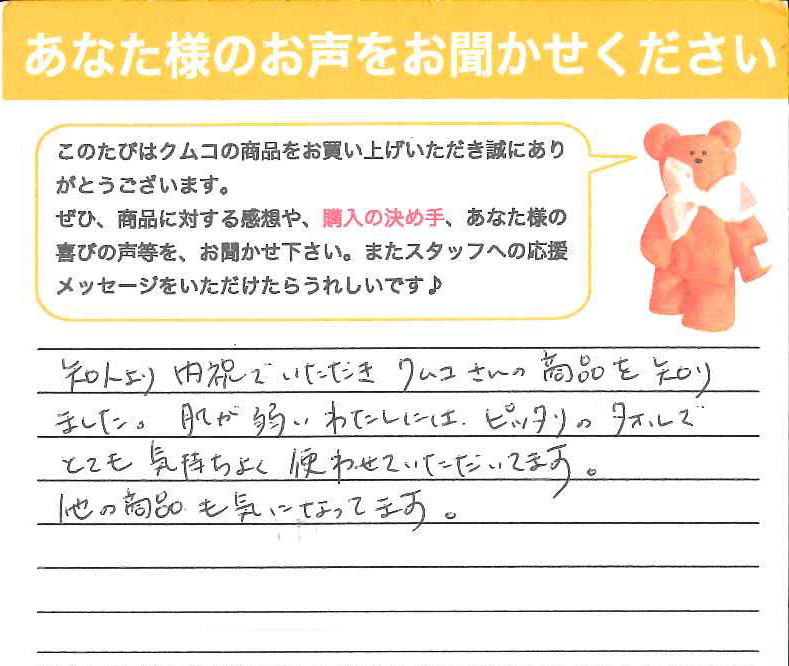 あなた様のお声をお聞かせください
このたびはクムコの商品をお買い上げいただき誠にあり
がとうございます。
ぜひ、商品に対する感想や、購入の決め手、あなた様の
喜びの声等を、お聞かせ下さい。またスタッフへの応援
メッセージをいただけたらうれしいです♪
知人より 内祝でいただき クムコさんの 商品を 知り
ました。 肌が 弱い わたしには ピッタリの タオルで
とても 気持ちよく 使わせていただいてます。
他の商品も気になってます。